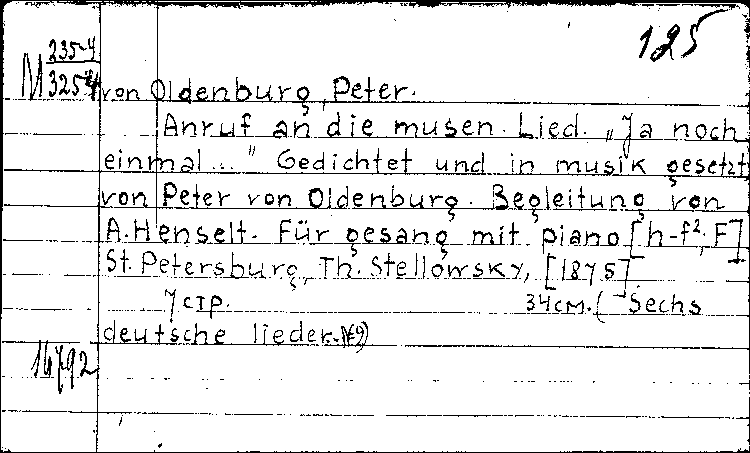 125
M 235-4
3254
von Oldenburg, Peter.
Anruf an die musen. Lied. „Ja noch
einmal..." Gedichtet und in musik gesetzt
von Peter von Oldenburg. Begleitung von
A. Henselt. Für gesang mit piano [h-f²; F]
St. Petersburg, Th. Stellowsky, [1875].
7 стр. 34 см. (Sechs
deutsche lieder.